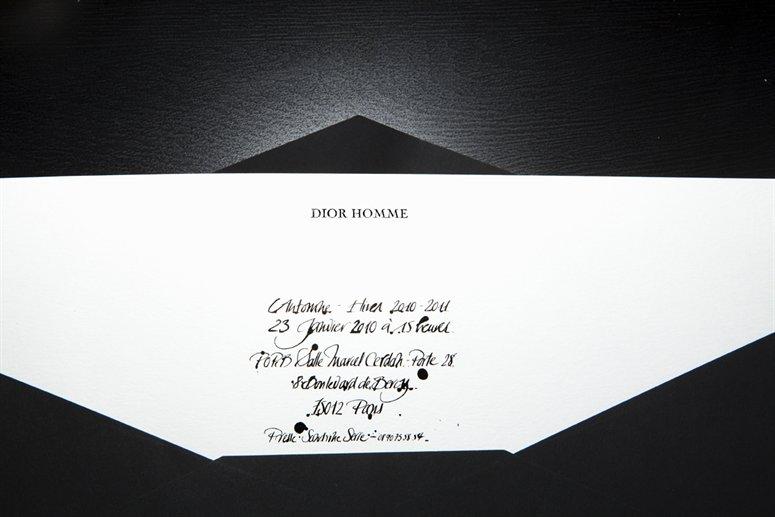 DIOR HOMME
Automne - Hiver 2010-2011
23 Janvier 2010 à 15 heures
POPB Salle Marcel Cerdan - Porte 28
8 Boulevard de Bercy
75012 Paris
Presse